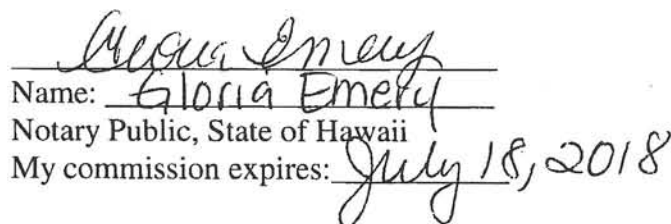 Gloria Emery
Name: Gloria Emery
Notary Public, State of Hawaii
My commission expires: July 18, 2018